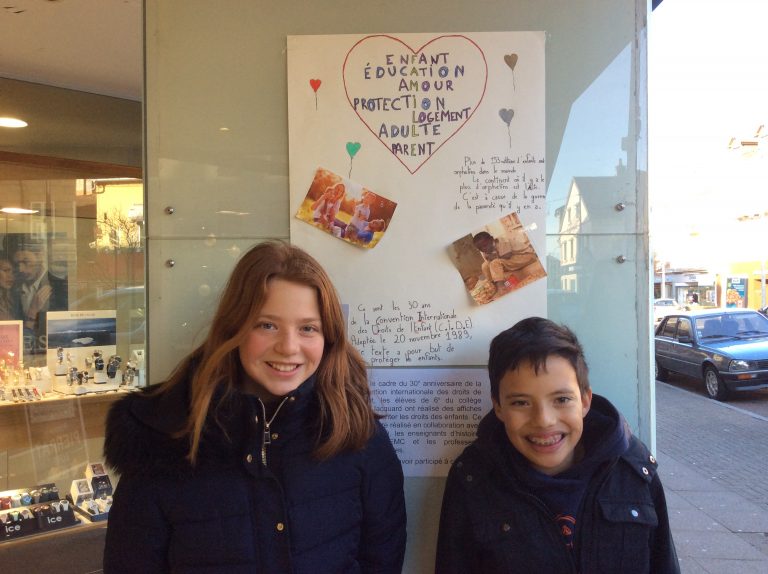 ENFANT
ÉDUCATION
AMOUR
PROTECTION
LOGEMENT
ADULTE
PARENT
Plus de 153 millions d'enfants sont
orphelins dans le monde
Le continent où il y a le
plus d'orphelins est l'Asie.
C'est à cause de la guerre
de la pauvreté qu'il y en a.
Ce sont les 30 ans
de la Convention Internationale
des Droits de l'Enfant (C.I.D.E)
Adoptée le 20 novembre 1989,
ce texte a pour but de
protéger les enfants.
le cadre du 30° anniversaire de la
internationale des droits de
les élèves de 6° du collège
Jacquard ont réalisé des affiches
les droits des enfants. Ce
réalisé en collaboration avec
les enseignants d'histoire
EMC et les
avoir participé à
ice
ice